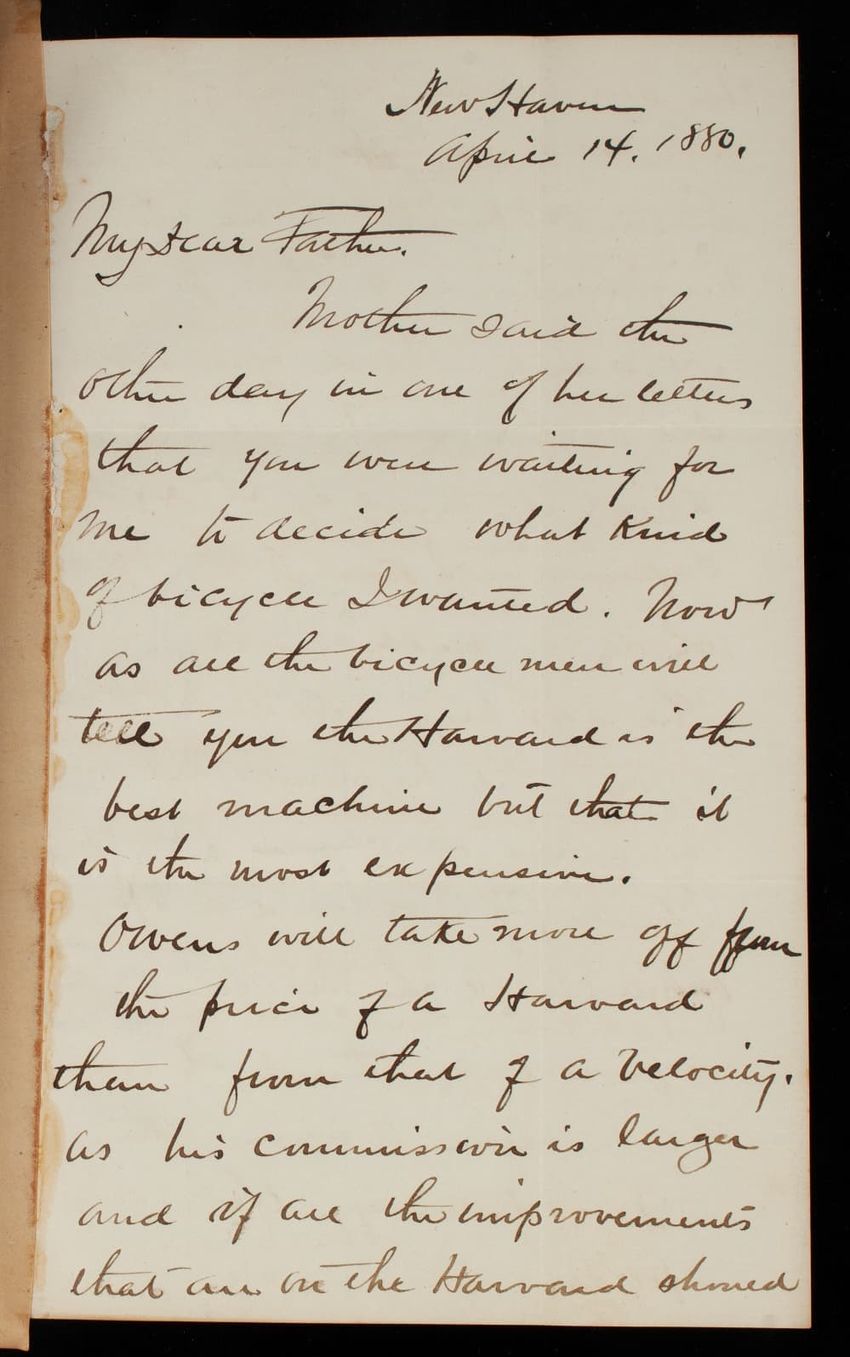 New Haven
April 14. 1880.
My dear Father.
Mother said the
other day in one of her letters
that you were waiting for
me to decide what kind
of bicycle I wanted. Now
as all the bicycle men will
tell you the Harvard is the
best machine but that it
is the most expensive.
Owens will take more off from
the price of a Harvard
than from that of a Velocity.
as his commission is larger
and if all the improvements
that are on the Harvard should